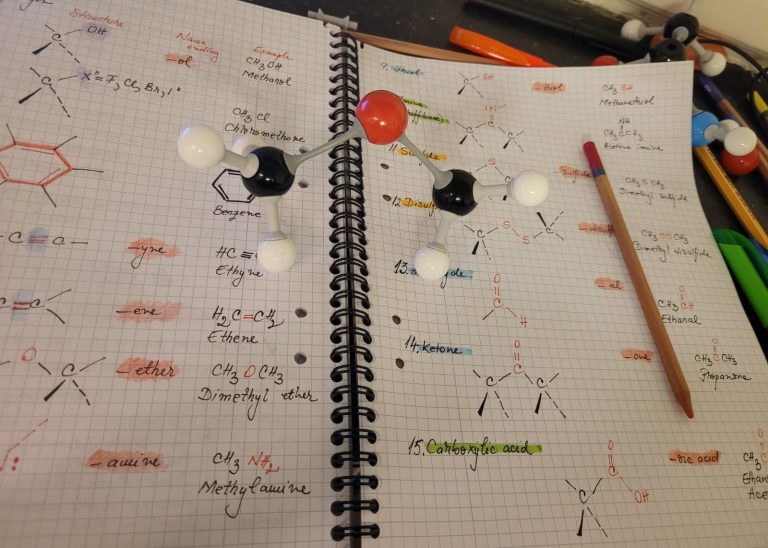 Structure
Name
ending
Example
C
OH
-ol
CH3OH
Methanol
C
X = F, Cl, Br, I
CH3 Cl
Chloromethane
Benzene
-C≡C-
-yne
HC≡
Ethyne
=C
-ene
H2C=CH2
Ethene
O
C
-ether
CH3 O CH3
Dimethyl ether
-amine
CH3 NH2
Methylamine
9.
C
SH
-thiol
CH3 SH
Methanethiol
C
NH
CH3CCH3
Acetone imine
11. Sulfide
S
sulfide
CH3 S CH3
Dimethyl sulfide
12. Disulf
C
S
S
C
-disulf
CH3 SS CH3
Dimethyl disulfide
13.
yde
O
C
H
-al
O
CH3 CH
Ethanal
14. Ketone
O
C
C
C
-one
O
CH3 C CH3
Propanone
15. Carboxylic acid
O
C
C
OH
-oic acid
O
CH3 C
Ethan
Ace